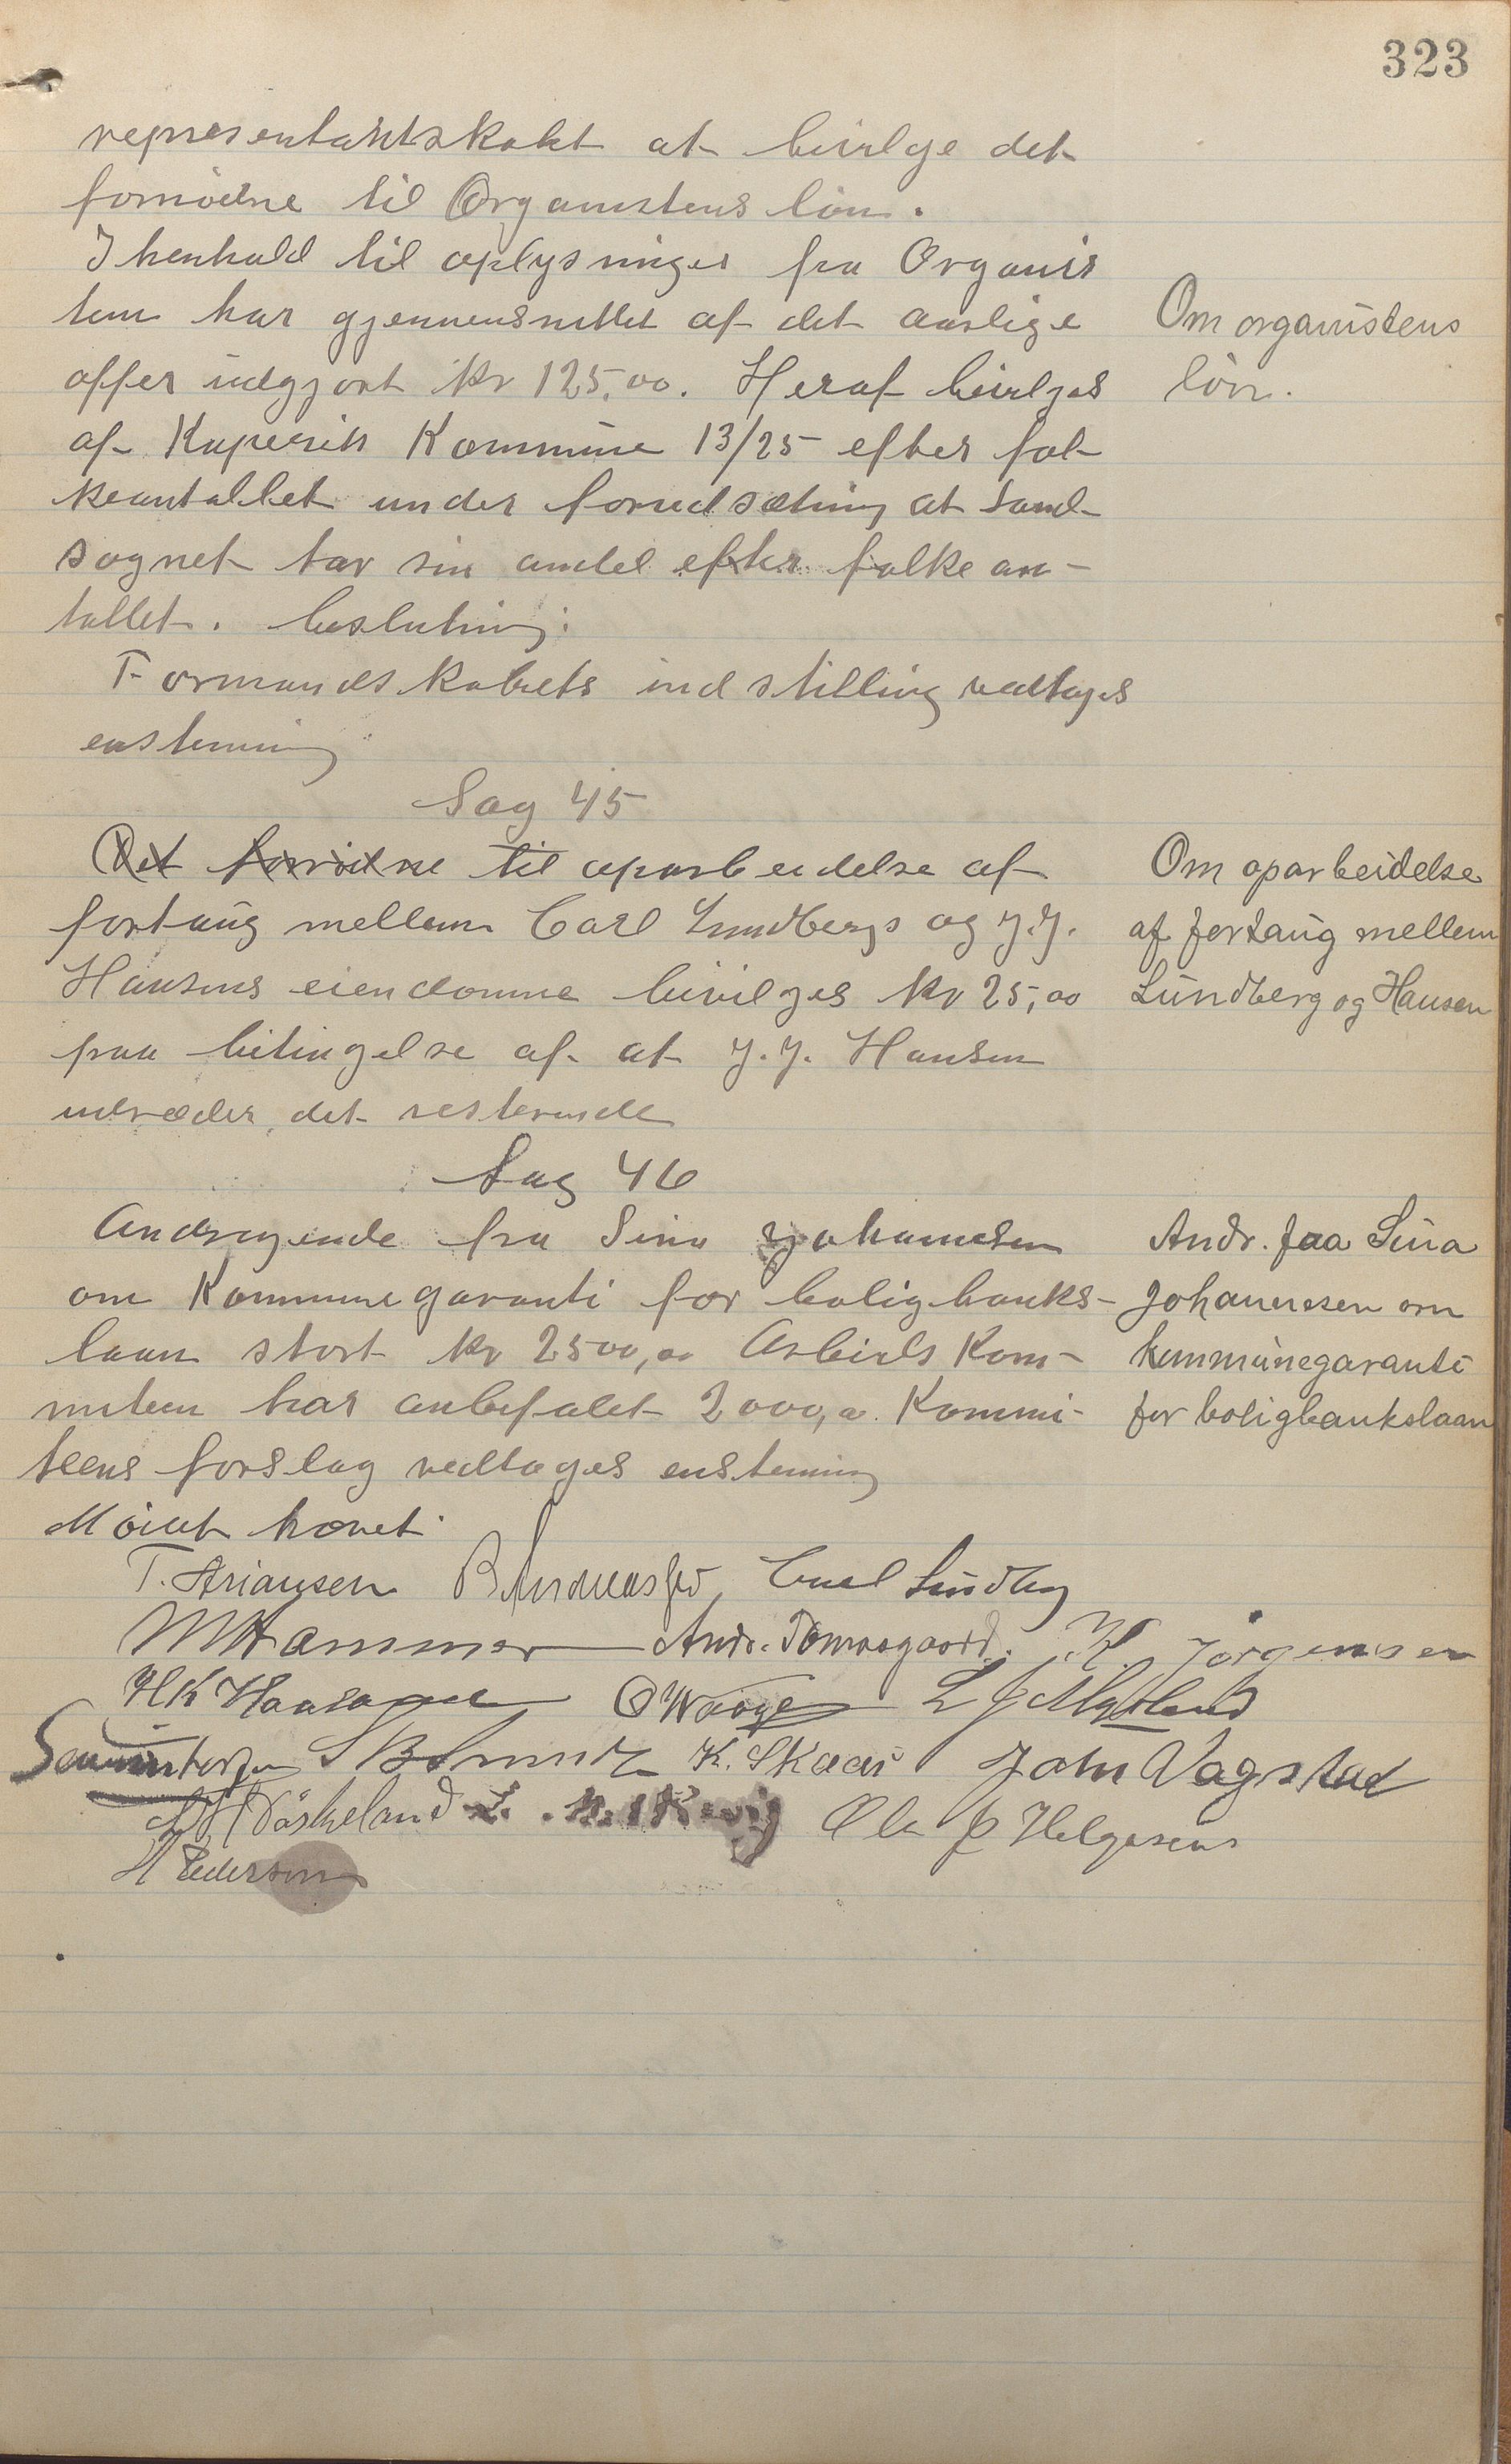 323
representantskabt at bevilge det
fornødne til Organistens løn.
I henhold til oplysninger fra Organis
ten har gjennemsnittet af det aarlige
Om organistens
offer udgjort Kr 125,00. Heraf bevilges
løn.
af Kopervik Kommune 13/25 efter fol-
keantallet under forudsætning at Land-
sognet tar sin andel efter folkean-
tallet. beslutning:
Formandskabets indstilling vedtages
enstemmig
Sag 45
Det fornødne til oparbeidelse af
Om oparbeidelse
fortaug mellem Carl Lundbergs og J.J.
af fortaug mellem
Hansens eiendomme bevilges Kr 25,00
Lundberg og Hansen
paa betingelse af at J.J. Hansen
udreder det resterende
Sag 46
Andragende fra Sina Johannesen
Andr. faa Sina
om Kommunegaranti for boligbanks-
Johannesen om
laan stort Kr 2500,00 Arbeids Kom-
kommunegaranti
miteen har anbefalet 2000,00. Kommi-
for boligbankslaan
teens forslag vedtages enstemmig
Møiet hævet.
T. Ariansen B Andreassen Carl Lundberg
M Hammer Andr. K. Jørgensen
HK O Waage L J Mykland
K. Skaar John Vagstad
Ola J Helgesen
H Pedersen